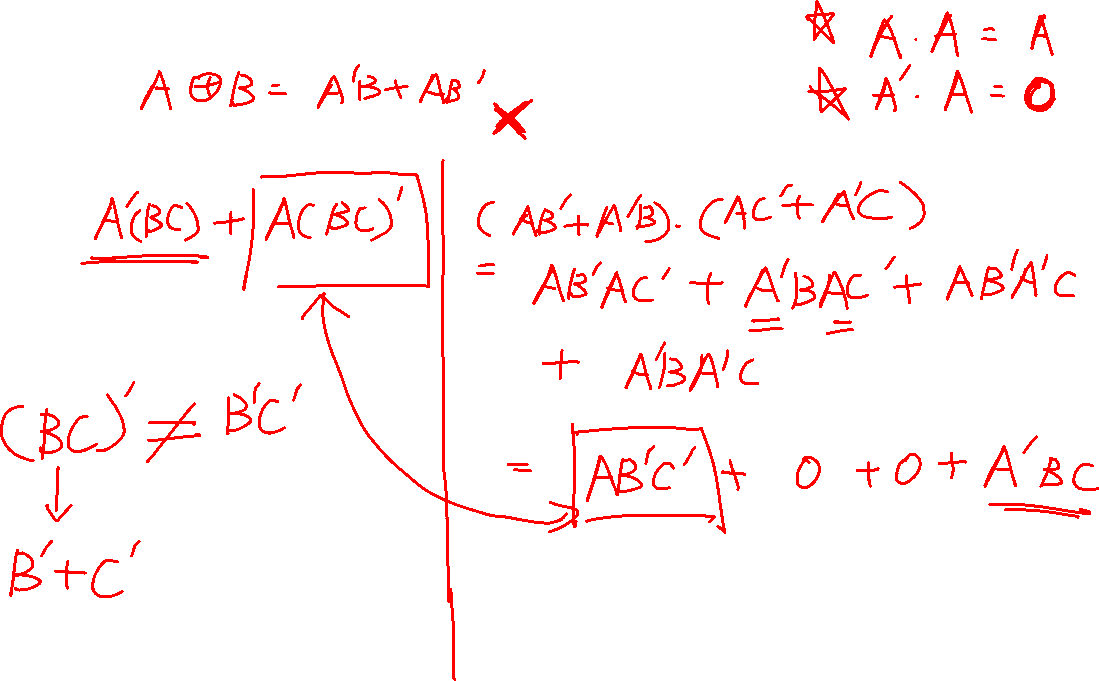 A · A = A
A' · A = 0
A ⊕ B = A'B + AB'
A'(BC) + A(BC)'
(BC)' ≠ B'C'
B' + C'
(AB' + A'B) · (AC' + A'C)
= AB'AC' + A'BAC' + AB'A'C
+ A'BA'C
= AB'C' + 0 + 0 + A'BC